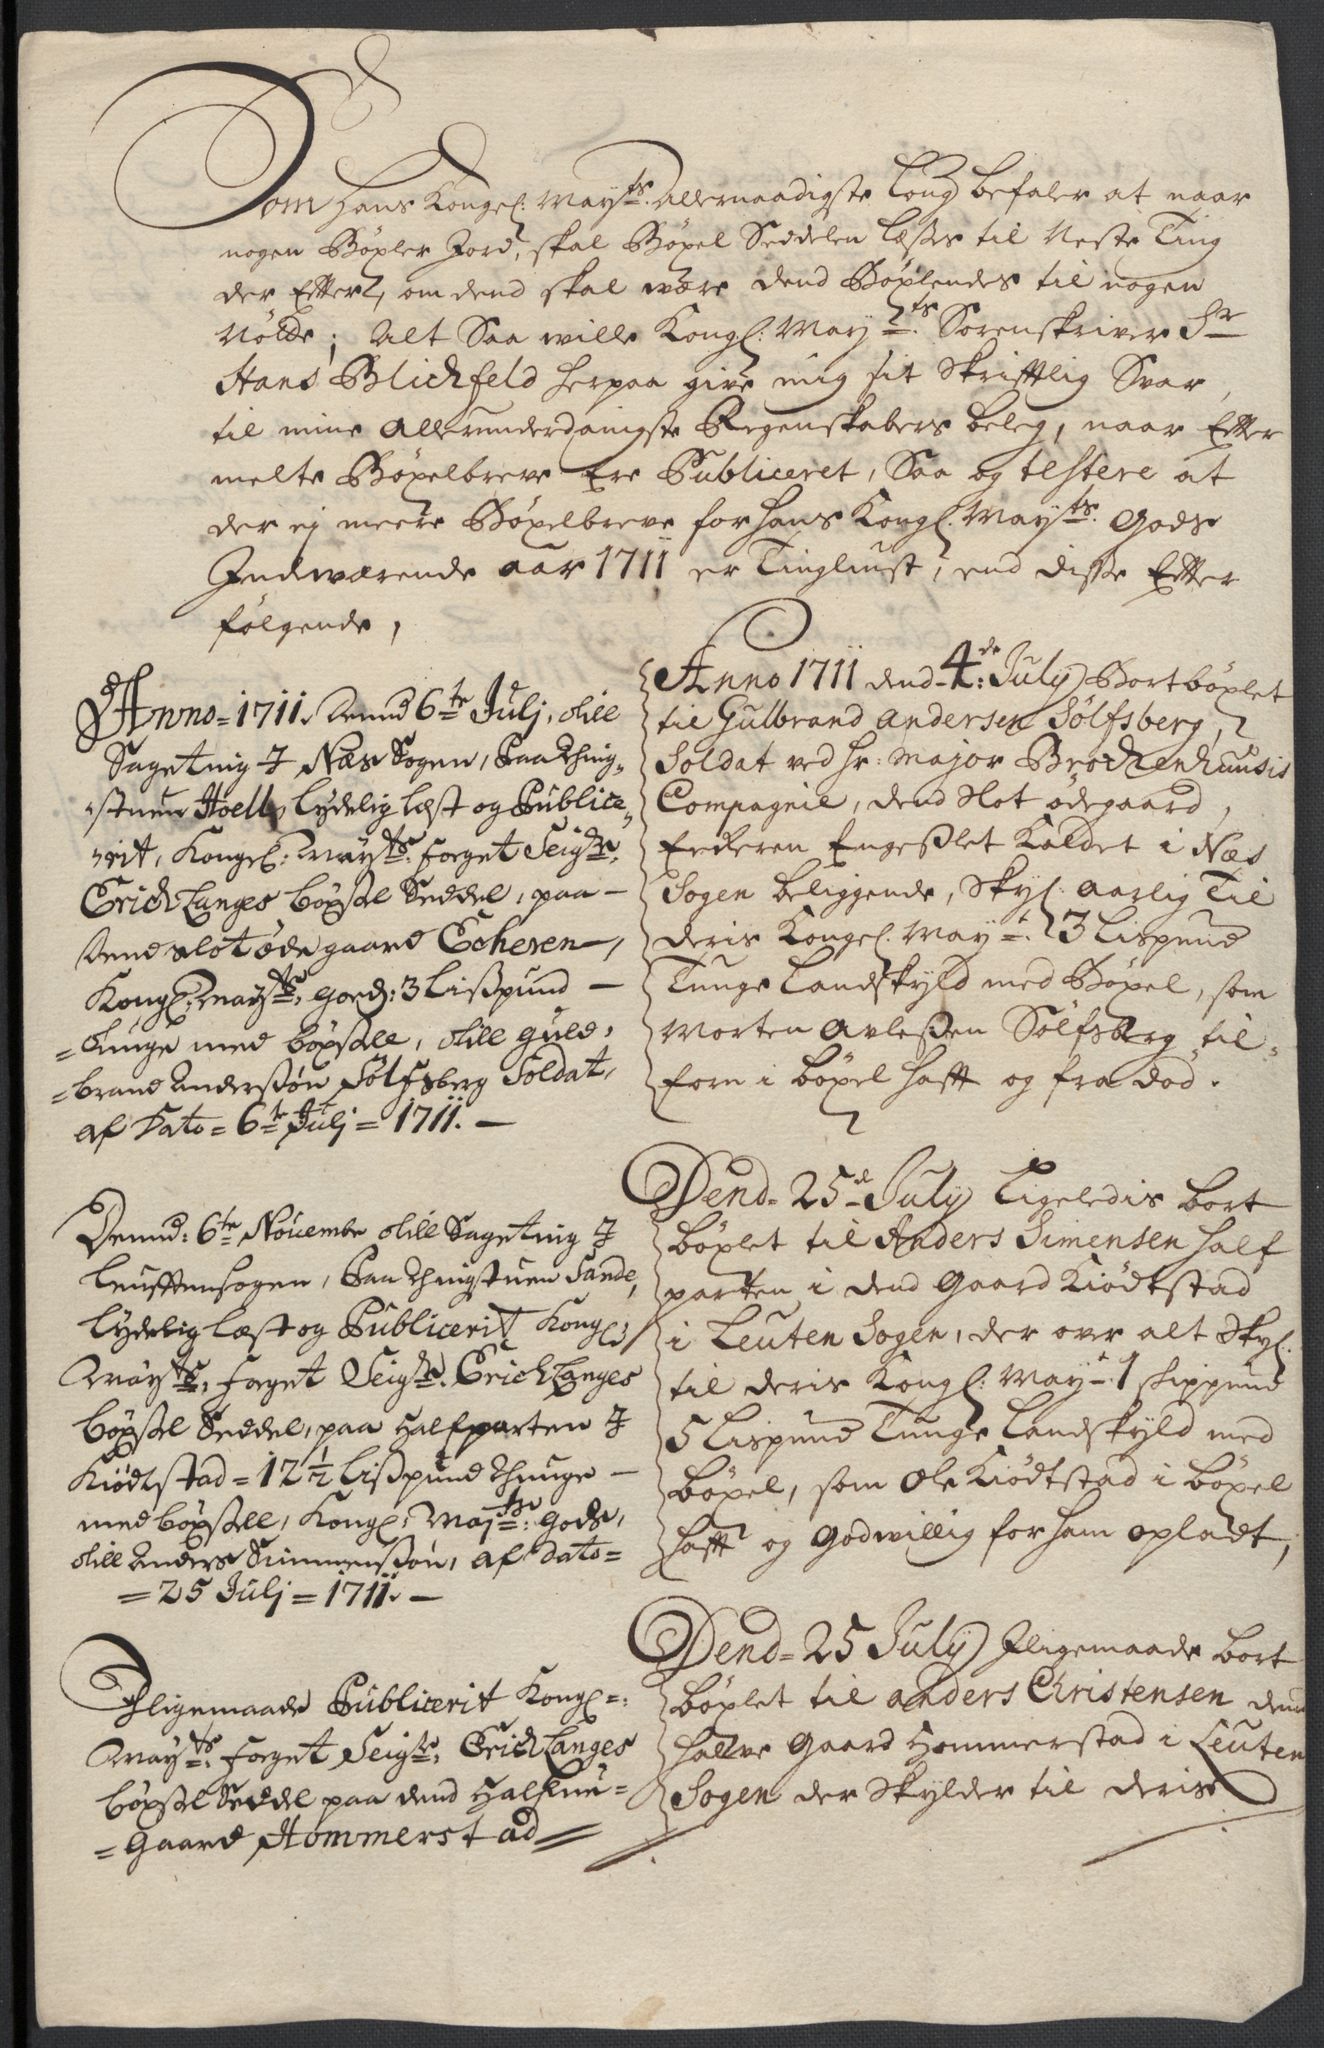 Som Hans Kongel: May:ts Allernaadigste Loug befaler at naar
nogen Böxler Jord, skal Böxel Seddelen læses til Neste Ting
der Effter, om dend skal være dend Böxlendes til nogen
Nölde; Alt Saa wille Kongl: May:ts Sorenskriver Sr
Hans Blichfeld herpaa give mig sit Skrifftlig Svar,
til mine allerunderdanigste Regenskabers beleg, naar Effter
melte Böxelbreve Ere Publiceret, Saa og testere at
der ej meere Böxelbreve for Hans Kongl. May:ts Gods
Indwærende aar 1711 er Tingliust, end disse Effter
følgende,
Anno = 1711. Dennd 6te Julj, till
Sageting I Næs Sogen, Paa Thing-
stuen Hoell, lydelig læst og Publice-
rit, Kongel: May:ts foget Seig:rs
Erich Langes böxsel Seddel, paa
dend slot øde gaard Echeren,
Kongl: May:ts goeds: 3 Lisspund
= tunge med böxsell, till Guld-
= brand Anderssøn Sölfsberg Soldat,
af Dato = 6te Julj = 1711.
Dennd: 6te Növembr till Sageting I
Leufften sogen, Paa Thingstuen Sande,
lydelig læst og Publicerit Kongl:
May:ts foget Seig:rs Erich Langes
böxsel Seddel, paa Halfparten I
Kiödtstad = 12½ Lisspund Thunge
med böxsell, Kongl: May:ts Gods,
till Anders Simmenssøn, af dato =
= 25 Julj = 1711.
Iligemaade Publicerit Kongl:
May:ts foget Seig:rs Erich Langes
böxsel Seddel paa dend Halfue =
= Gaard Hommerstad
Anno 1711 dend 4de July Bortböxlet
til Gulbrand Andersen Sölfsberg,
Soldat ved Hr: Major Brochenhuusis
Compagnie, dend Slot ödegaard,
Eecheren Engeslet Kaldet i Næs
Sogen beliggende, Skyl: aarlig Til
deris Kongel. May:t 3 Lispund
Tunge Landskyld med Böxel, som
Morten Avlessen Sölfsberg til-
forn i böxel hafft og fra död.
Dend = 25de July Ligeledis bort
böxlet til Anders Simensen half
parten i dend Gaard Kiödtstad
i Leuten Sogen, der ovr alt Skyl:
til deris Kongl: May:t 1 skippund
5 Lispund Tunge Landskyld med
böxel, som Ole Kiödtstad i böxel
hafft og Godwillig for ham opladt,
Dend = 25 July Iligemaade bort
böxlet til anders Christensen dend
halve Gaard Hommerstad i Leuten
Sogen der Skylder til deris